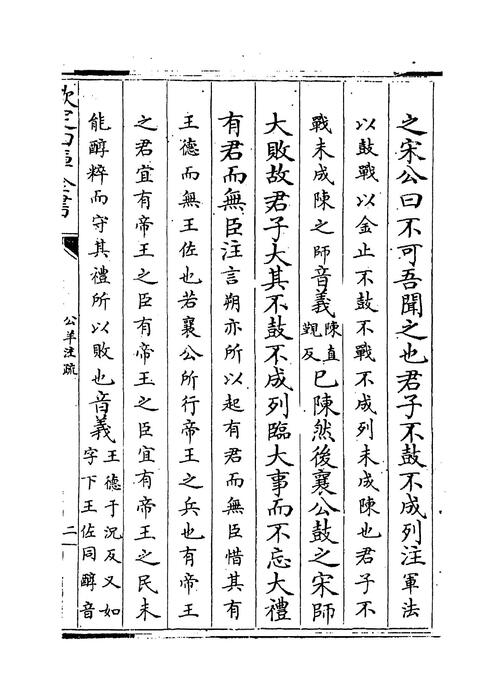 之宋公曰不可吾聞之也君子不鼓不成列注軍法
以鼓戰以金止不鼓不戰不成列未成陳也君子不
戰未成陳之師音義陳直覲反已陳然後襄公鼓之宋師
大敗故君子大其不鼓不成列臨大事而不忘大禮
有君而無臣注言朔亦所以起有君而無臣惜其有
王德而無王佐也若襄公所行帝王之兵也有帝王
之君宜有帝王之臣有帝王之臣宜有帝王之民未
能醇粹而守其禮所以敗也音義王德于况反又如
字下王佐同醇音
欽定四庫全書
公羊注疏
二